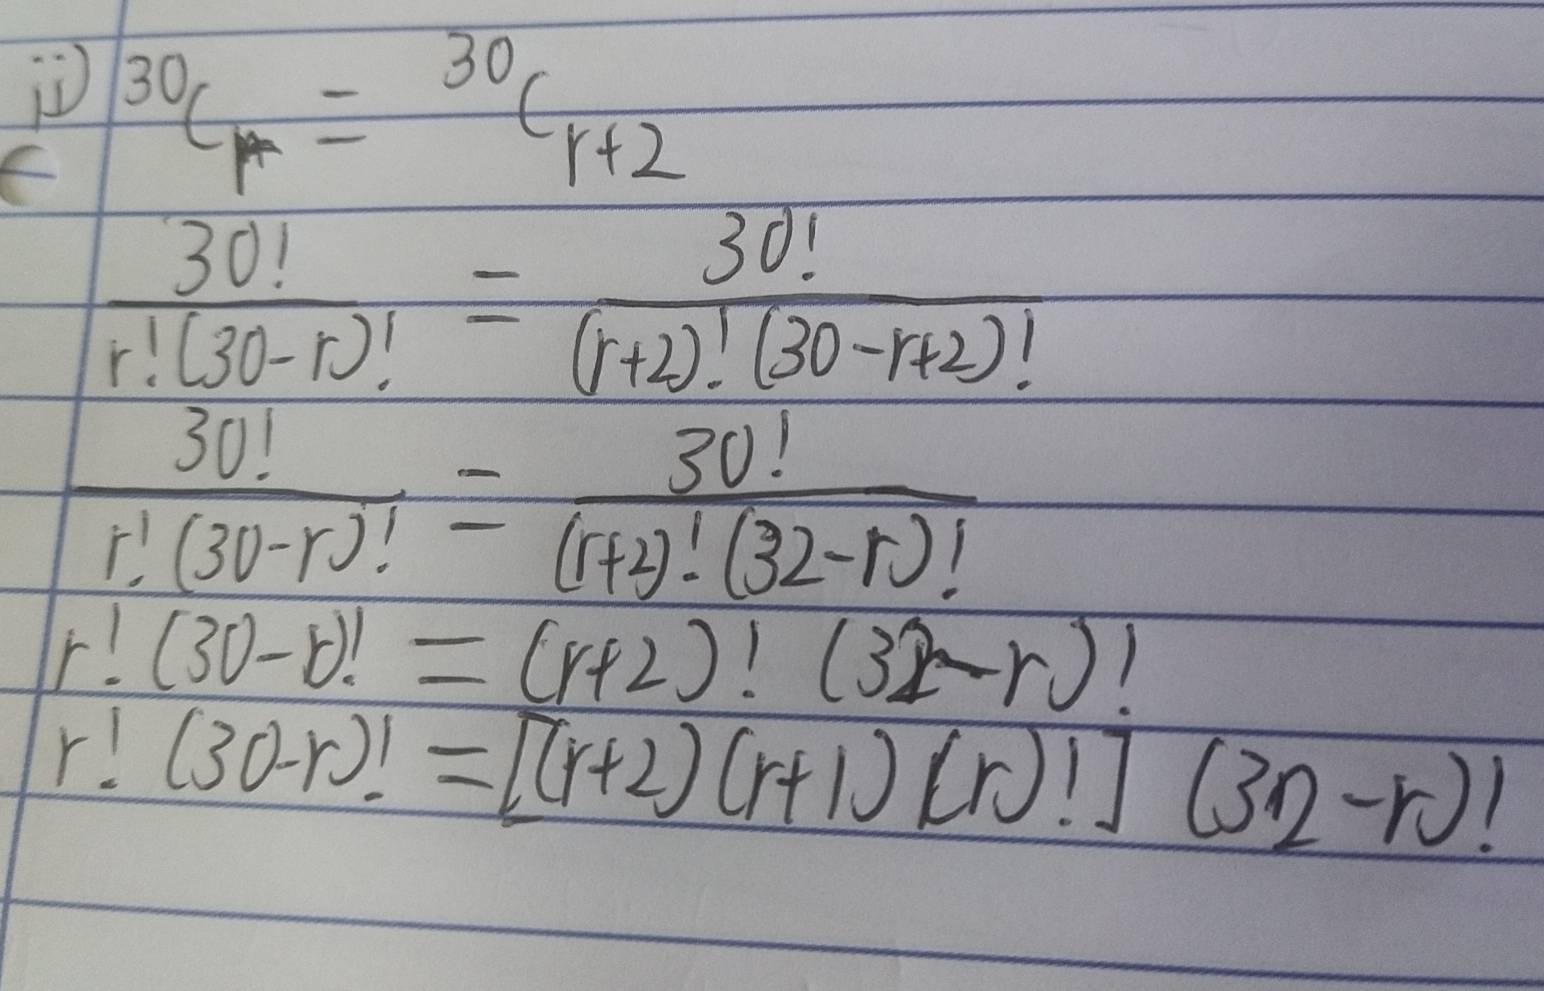 ii) ³⁰Cᵣ = ³⁰Cᵣ₊₂
30!/r!(30-r)! = 30!/(r+2)!(30-r+2)!
30!/r!(30-r)! = 30!/(r+2)!(32-r)!
r! (30-r)! = (r+2)! (32-r)!
r! (30-r)! = [(r+2)(r+1)(r)!] (32-r)!